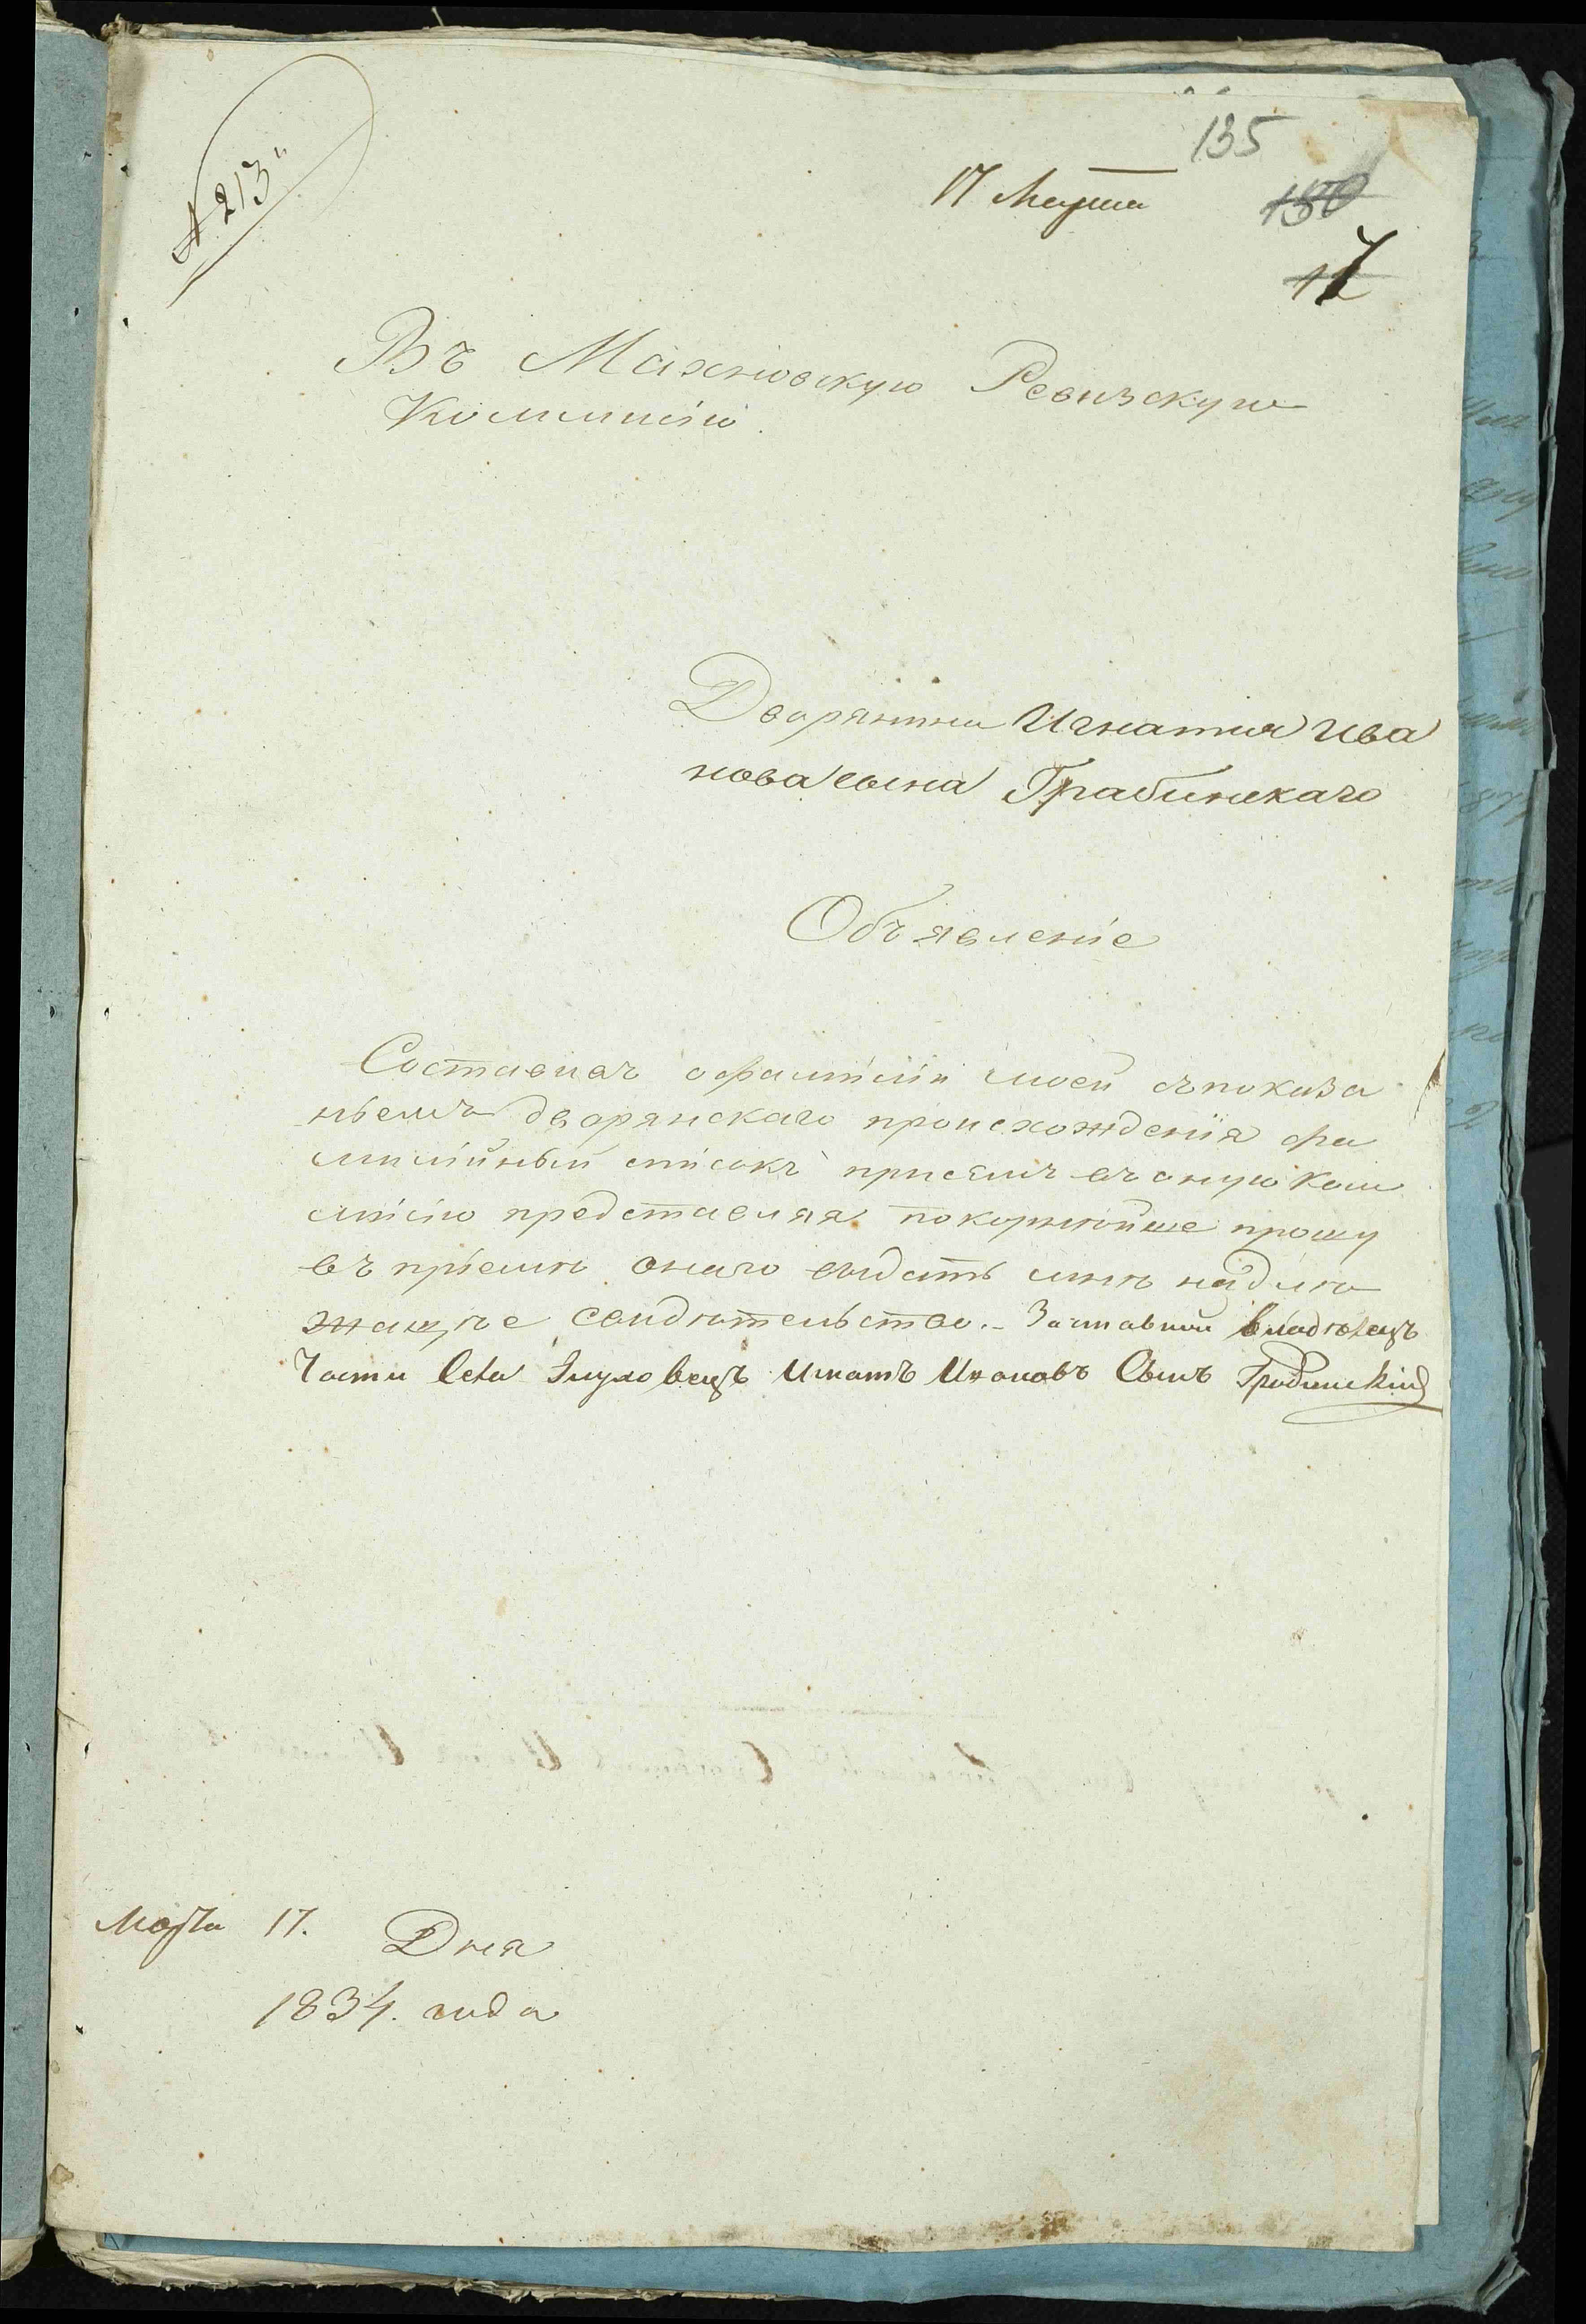 135
№ 213"
17 Марта
150
7
Въ Махновскую Ревизскую
Коммисію.
Дворянина Игнатия Ива
нова сына Грабинскаго
Объявленіе
Составивъ о фамиліи моей съ показа
ніемъ дворянскаго происхожденія фа
милійный списокъ присемъ въ оную Ком
мисію представляя покорнѣйше прошу
въ пріемѣ онаго выдать мнѣ надлѣ
жащѣе свидѣтельство. - Заставный владѣлецъ
Части Села Глуховецъ Игнатъ Ивановъ Сынъ Грабинскій
Марта 17. Дня
1834. года